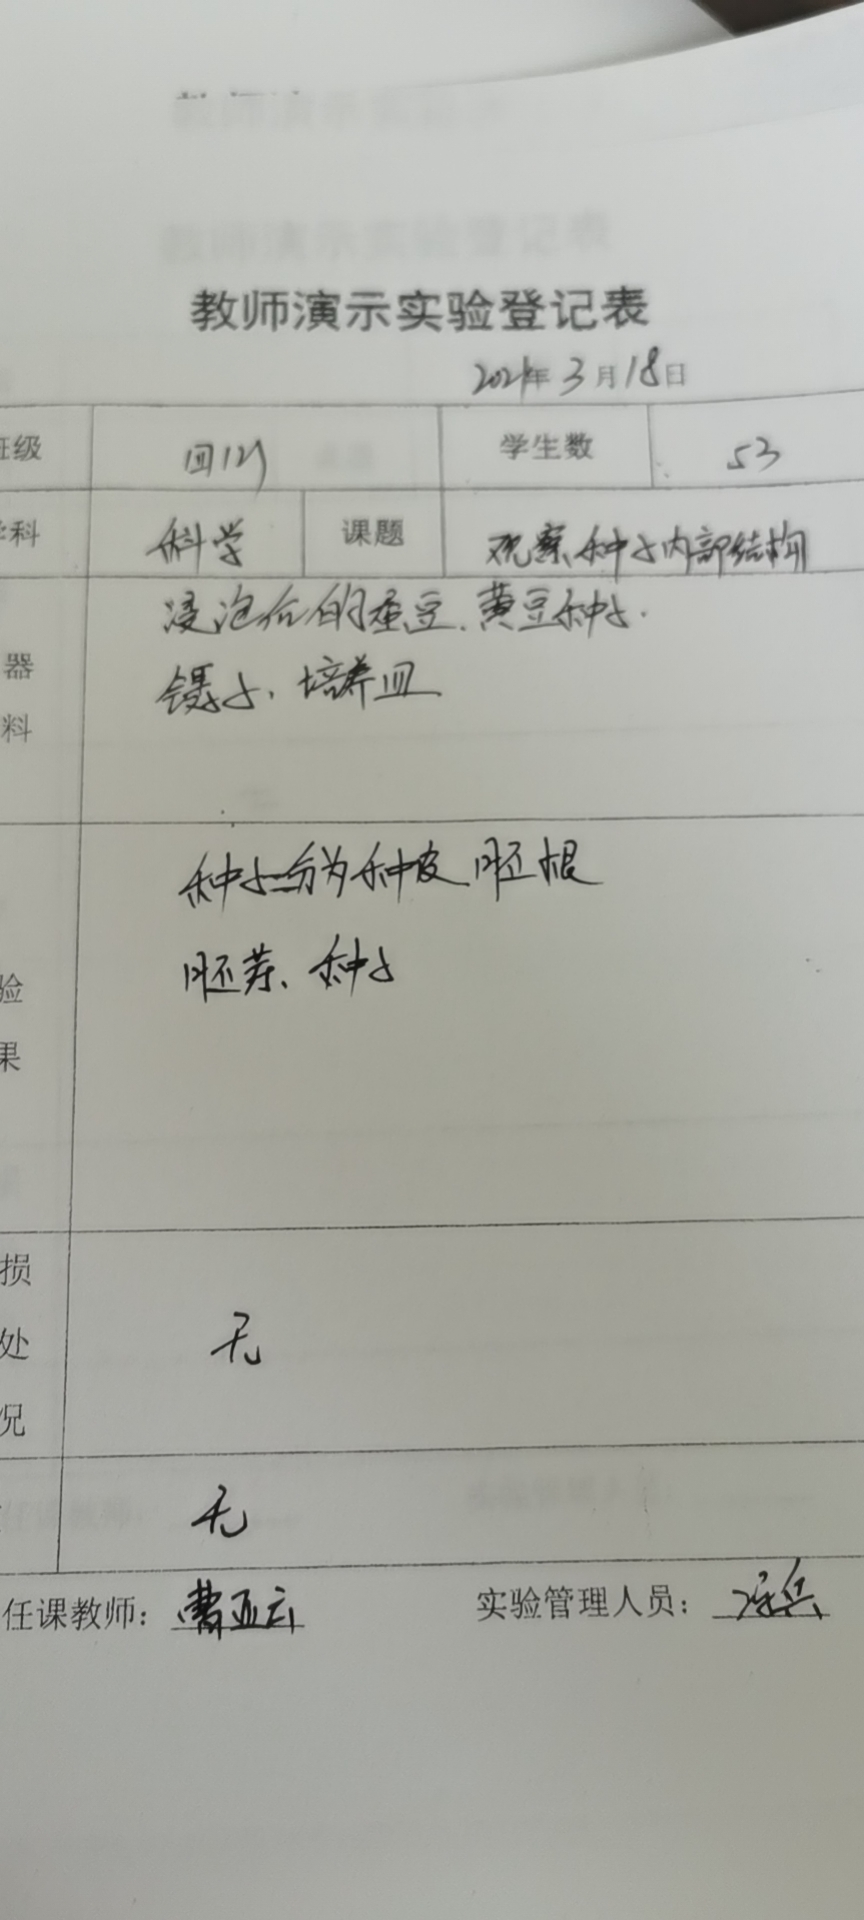 教师演示实验登记表
2021年3月18日
班级 四(2) 学生数 53
学科 科学 课题 观察种子内部结构
浸泡后的蚕豆、黄豆种子.
器 镊子、培养皿
料
种子分为种皮、胚根
胚芽、种子
验
果
损
处 无
况
无
任课教师: 曹亚云 实验管理人员: